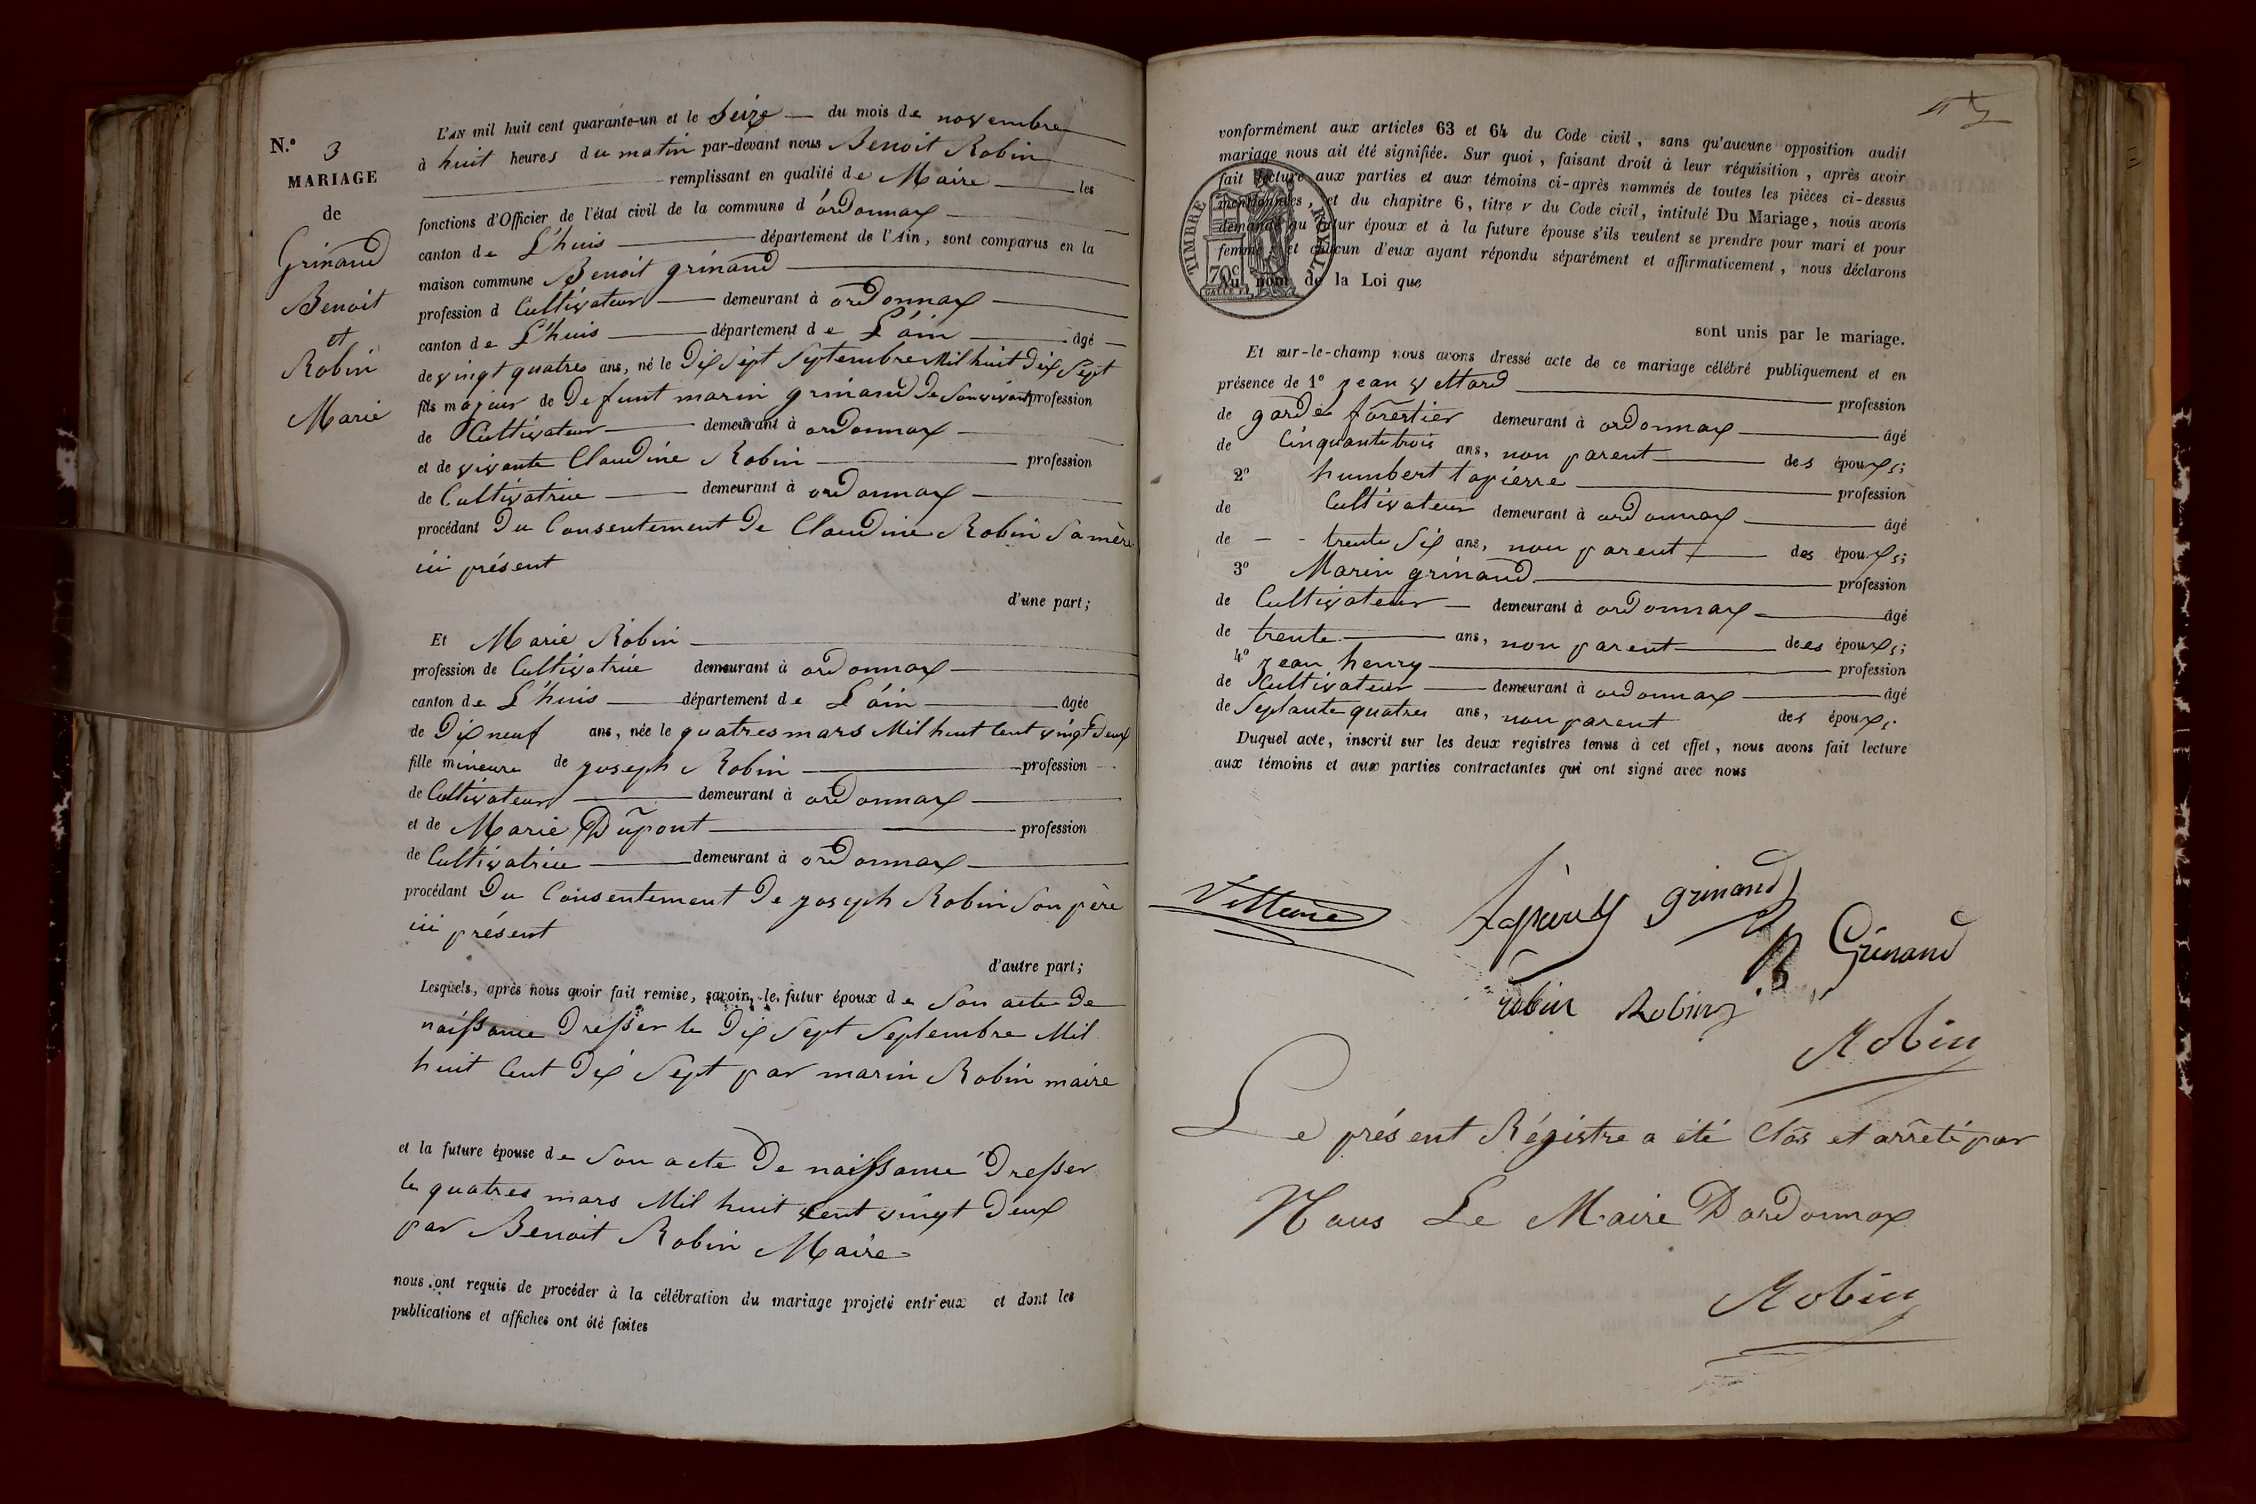 N.º 3
MARIAGE
de
Grinand
Benoit
et
Robin
Marie
L'AN mil huit cent quarante-un et le Seize du mois de novembre
à huit heures du matin par-devant nous Benoit Robin
remplissant en qualité de Maire les
fonctions d'Officier de l'état civil de la commune d'ordonnax
canton de L'huis département de l'Ain, sont comparus en la
maison commune Benoit grinand
profession d Cultivateur demeurant à ordonnax
canton de L'huis département de L'ain âgé
de vingt quatres ans, né le Dix Sept Septembre Mil huit Dix Sept
fils majeur de Defunt marin grinand De Son vivant profession
de Cultivateur demeurant à ordonnax
et de vivante Claudine Robin profession
de Cultivatrice demeurant à ordonnax
procédant Du Consentement De Claudine Robin Sa mère
ici présent
d'une part;
Et Marie Robin
profession de Cultivatrice demeurant à ordonnax
canton de L'huis département de L'ain âgée
de Dix neuf ans, née le quatres mars Mil huit Cent vingt Deux
fille mineure de joseph Robin profession
de Cultivateur demeurant à ordonnax
et de Marie Dupont profession
de Cultivatrice demeurant à ordonnax
procédant Du Consentement De joseph Robin Son père
ici présent
d'autre part;
Lesquels, après nous avoir fait remise, savoir, le futur époux de Son acte De
naissance Dresser le Dix Sept Septembre Mil
huit Cent Dix Sept par marin Robin maire
et la future épouse de Son acte De naissance Dresser
le quatres mars Mil huit Cent vingt Deux
par Benoit Robin Maire
nous ont requis de procéder à la célébration du mariage projeté entr'eux et dont les
publications et affiches ont été faites
conformément aux articles 63 et 64 du Code civil, sans qu'aucune opposition audit
mariage nous ait été signifiée. Sur quoi, faisant droit à leur réquisition, après avoir
fait lecture aux parties et aux témoins ci-après nommés de toutes les pièces ci-dessus
mentionnées, et du chapitre 6, titre v du Code civil, intitulé Du Mariage, nous avons
demandé au futur époux et à la future épouse s'ils veulent se prendre pour mari et pour
femme; et chacun d'eux ayant répondu séparément et affirmativement, nous déclarons
Au nom de la Loi que
TIMBRE ROYAL
70c
sont unis par le mariage.
Et sur-le-champ nous avons dressé acte de ce mariage célébré publiquement et en
présence de 1º jean vettard profession
de garde forestier demeurant à ordonnax âgé
de Cinquante trois ans, non parent des époux;
2º humbert tapierre profession
de Cultivateur demeurant à ordonnax âgé
de trente Six ans, non parent des époux;
3º Marin grinand profession
de Cultivateur demeurant à ordonnax âgé
de trente ans, non parent des époux;
4º jean henry profession
de Cultivateur demeurant à ordonnax âgé
de Septante quatres ans, non parent des époux.
Duquel acte, inscrit sur les deux registres tenus à cet effet, nous avons fait lecture
aux témoins et aux parties contractantes qui ont signé avec nous
Vettard grinand
B Grinand
robin Robin
Robin
Le présent Régistre a été Clos et arrêté par
Nous Le Maire Dordonnax
Robin